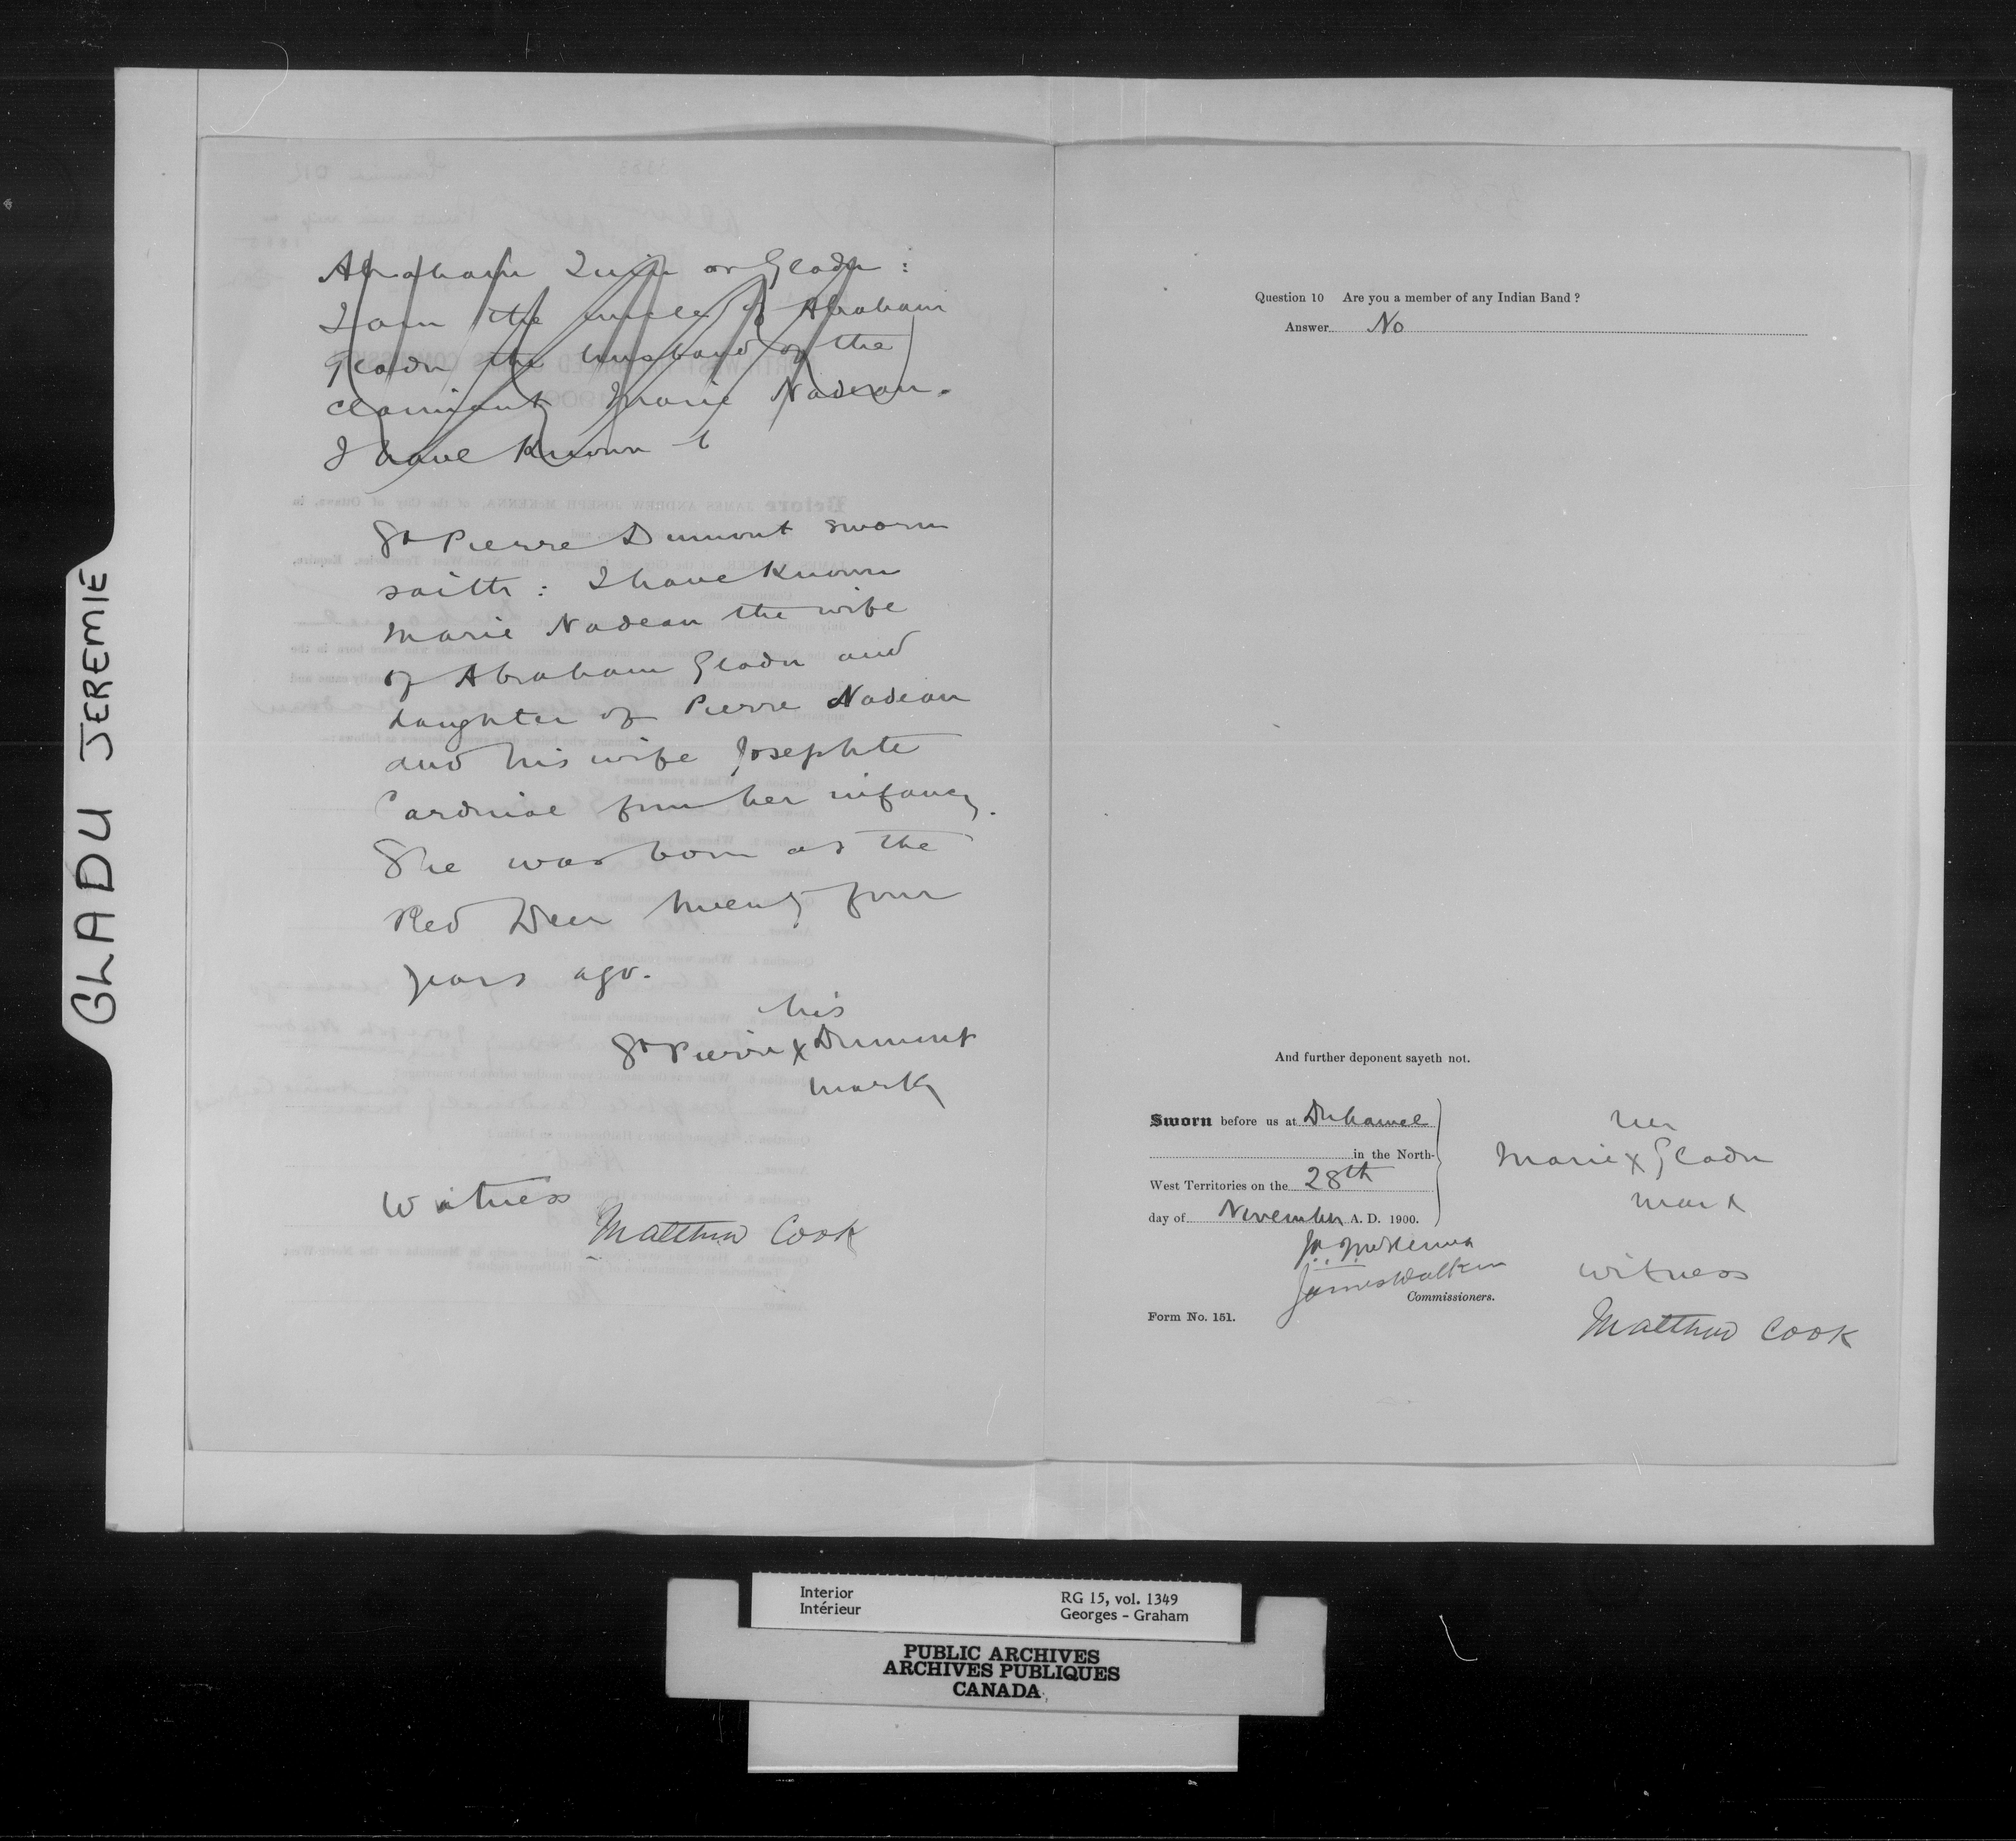 GLADU JEREMIE
Abraham Quin or Gladu :
I am the uncle of Abraham
Gladu the husband of the
claimant Marie Nadeau.
I have known t
St Pierre Dumont sworn
saith : I have known
Marie Nadeau the wife
of Abraham Gladu and
daughter of Pierre Nadeau
and his wife Josephte
Cardinal from her infancy.
She was born at the
Red Deer twenty four
years ago.
his
St Pierre x Dumont
mark
Witness
Matthew Cook
Question 10 Are you a member of any Indian Band ?
Answer No
And further deponent sayeth not.
Sworn before us at Duhamel
in the North-
West Territories on the 28th
day of November A. D. 1900.
her
Marie x Gladu
mark
J. A. J. McKenna
James Walker
Commissioners.
witness
Matthew Cook
Form No. 151.
Interior
Intérieur
RG 15, vol. 1349
Georges - Graham
PUBLIC ARCHIVES
ARCHIVES PUBLIQUES
CANADA